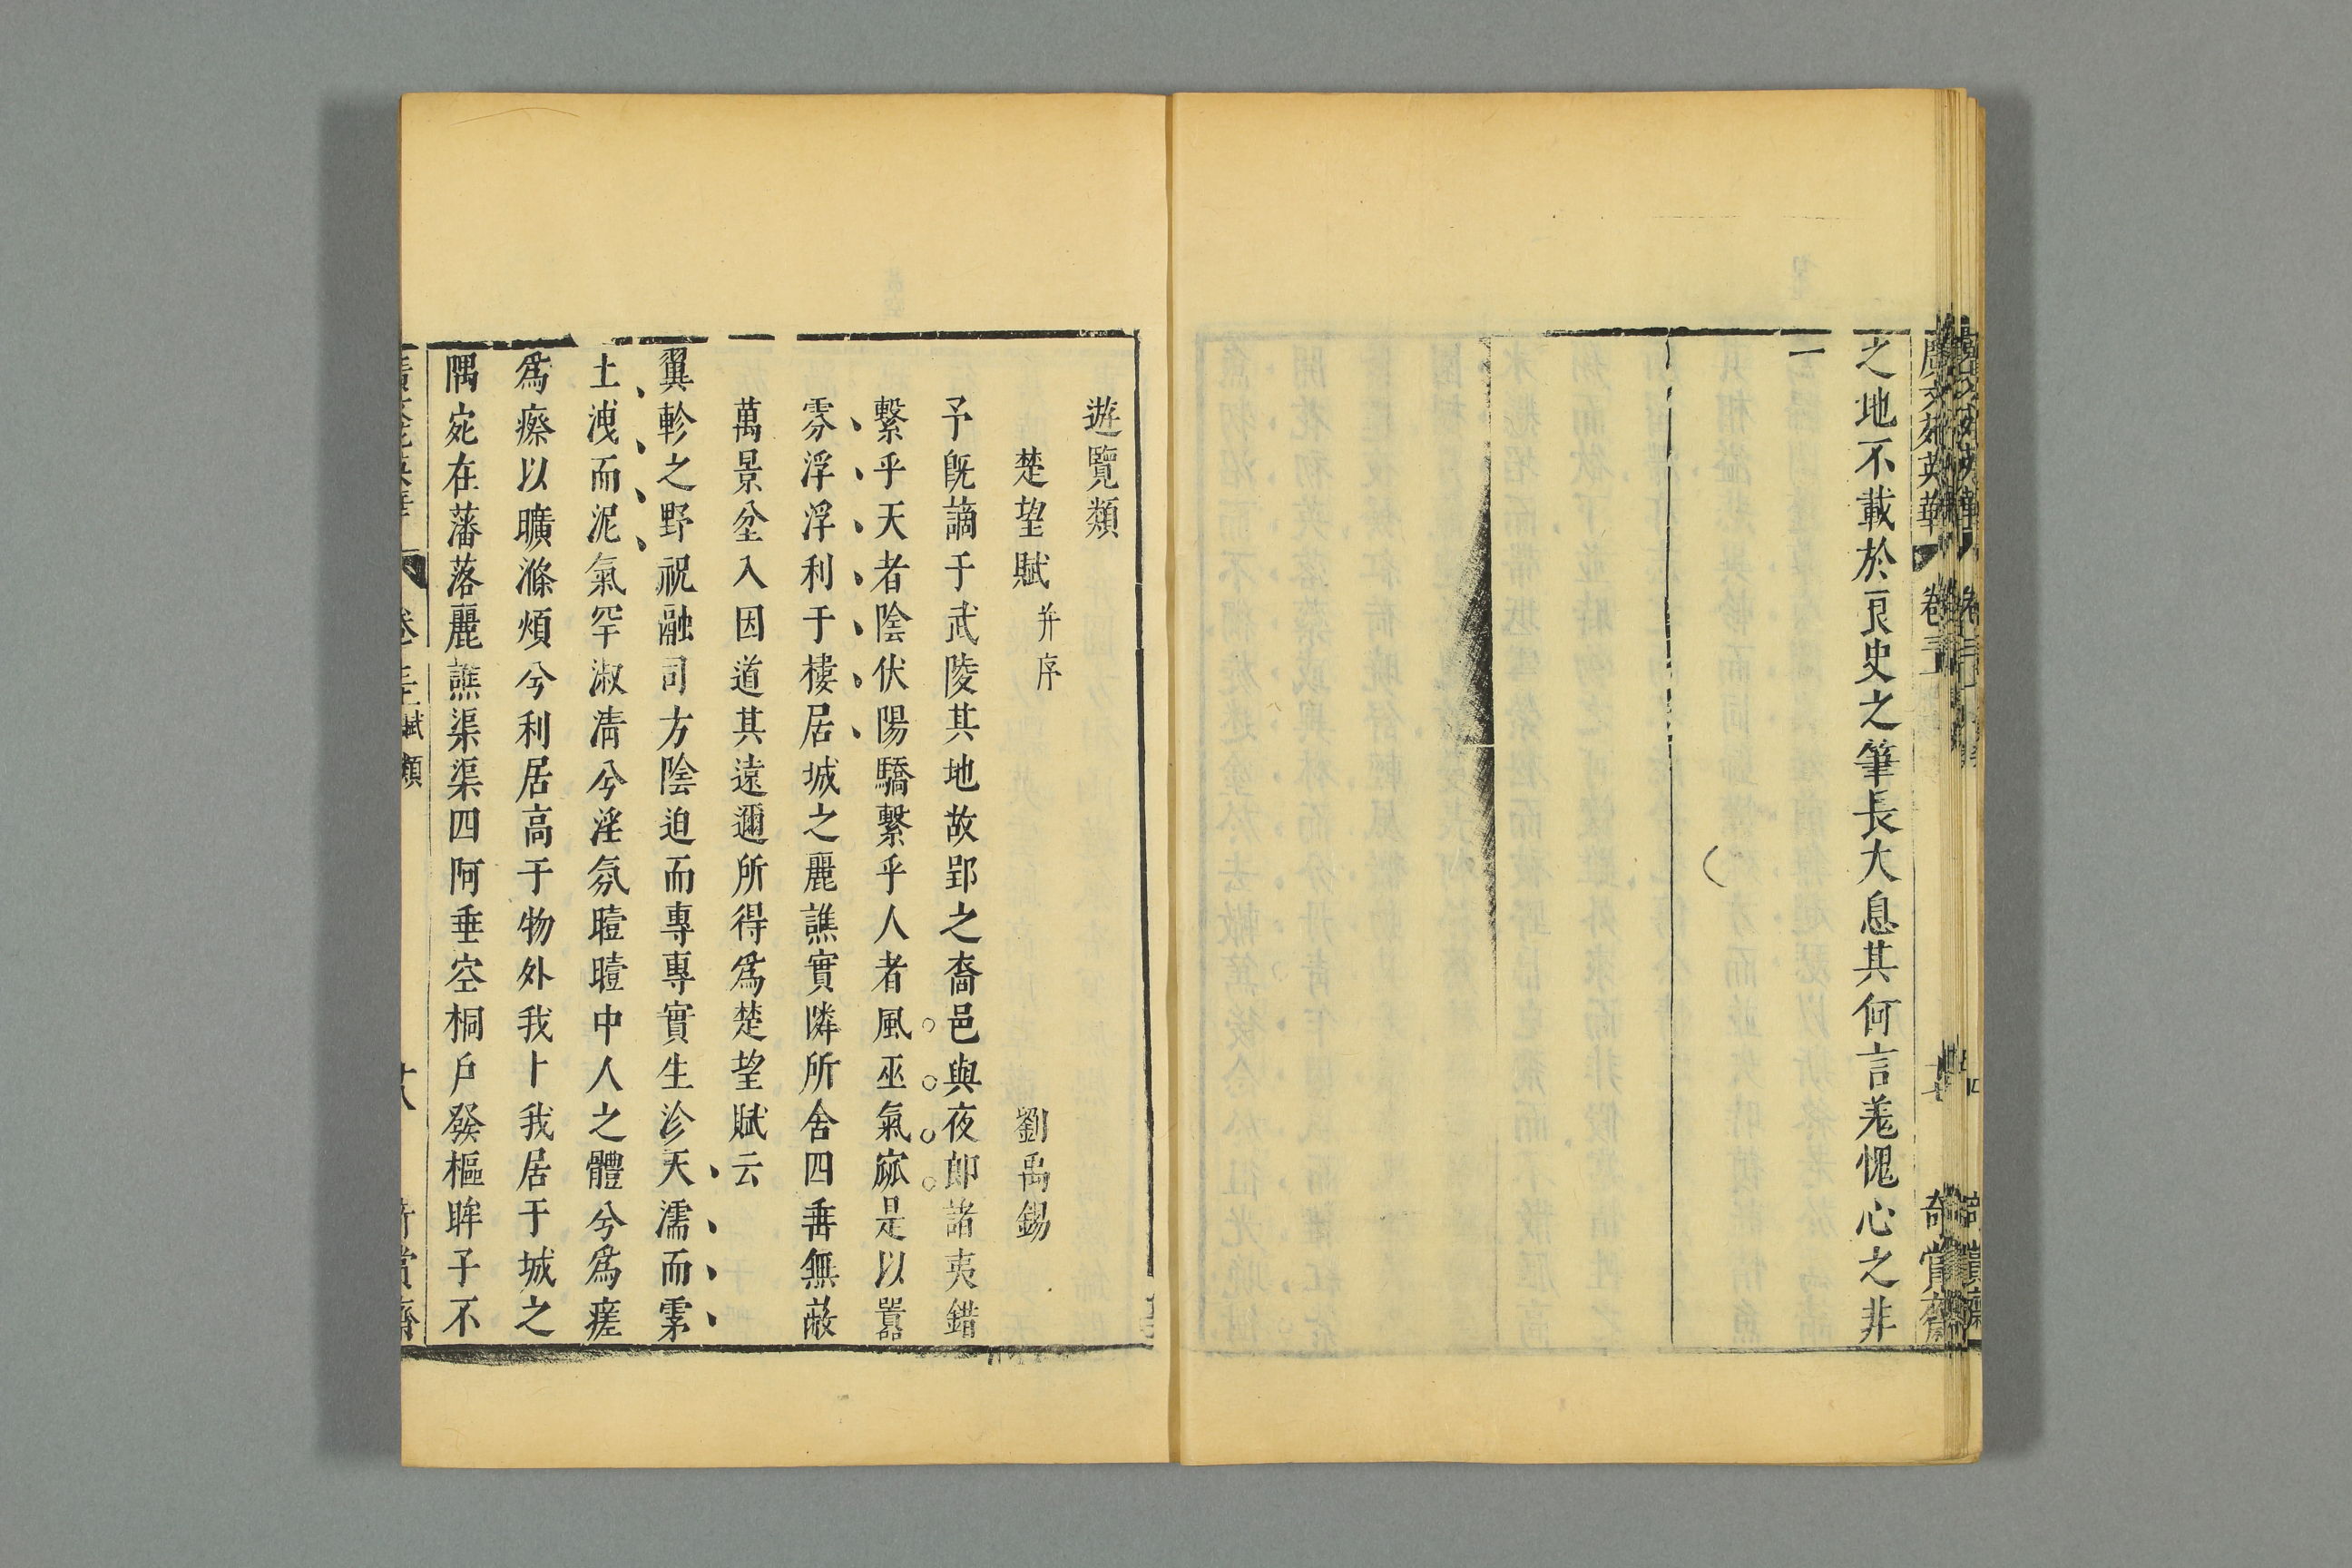 廣文苑英華 卷三 奇賞齋
之地不載於良史之筆長大息其何言羌愧心之非
一
遊覽類
楚望賦 并序 劉禹錫
予旣謫于武陵其地故郢之裔邑與夜郎諸夷錯
繫乎天者陰伏陽驕繫乎人者風巫氣窳是以囂
雰浮浮利于棲居城之麗譙實隣所舍四垂無蔽
萬景坌入因道其遠邇所得爲楚望賦云
翼軫之野祝融司方陰迫而專專實生沴天濡而雺
土洩而泥氣罕淑淸兮淫氛曀曀中人之體兮爲瘥
爲瘵以曠滌煩兮利居高于物外我卜我居于城之
隅宛在藩落麗譙渠渠四阿垂空桐戶發樞眸子不
賦類